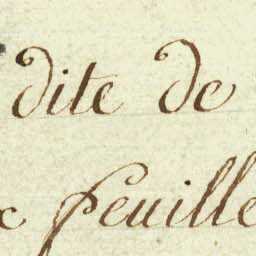 dite de
x feuille